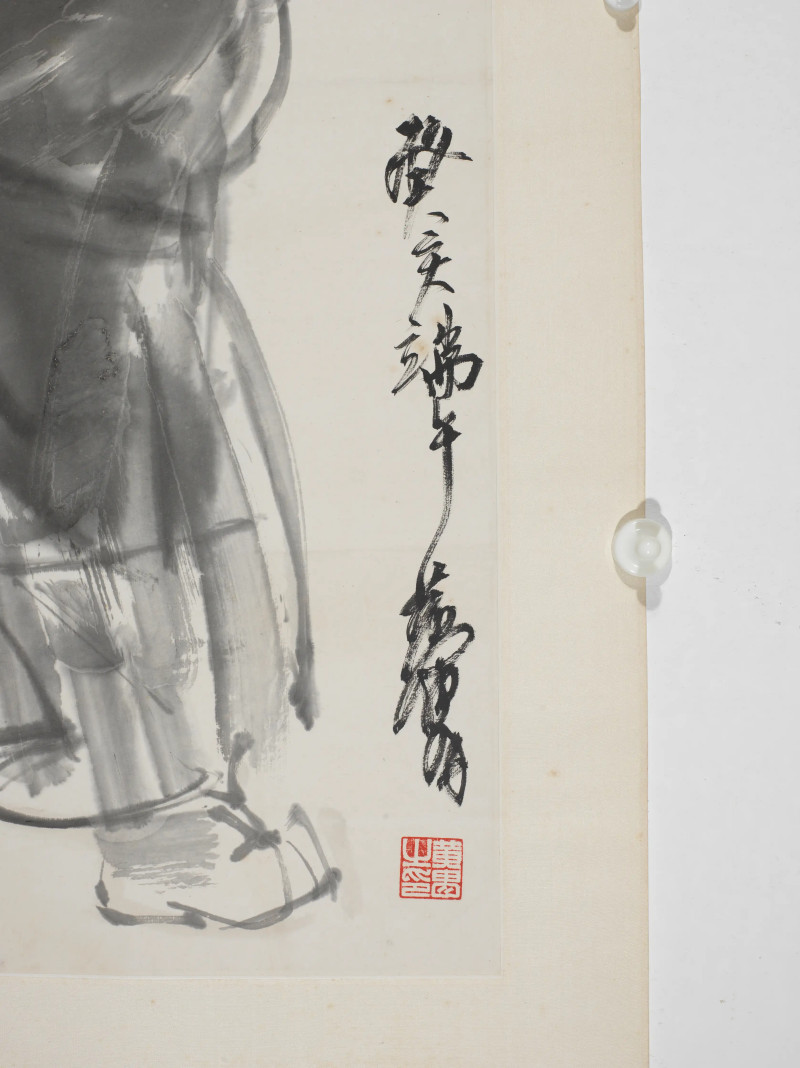 癸亥端午黄胄
黄胄
之印